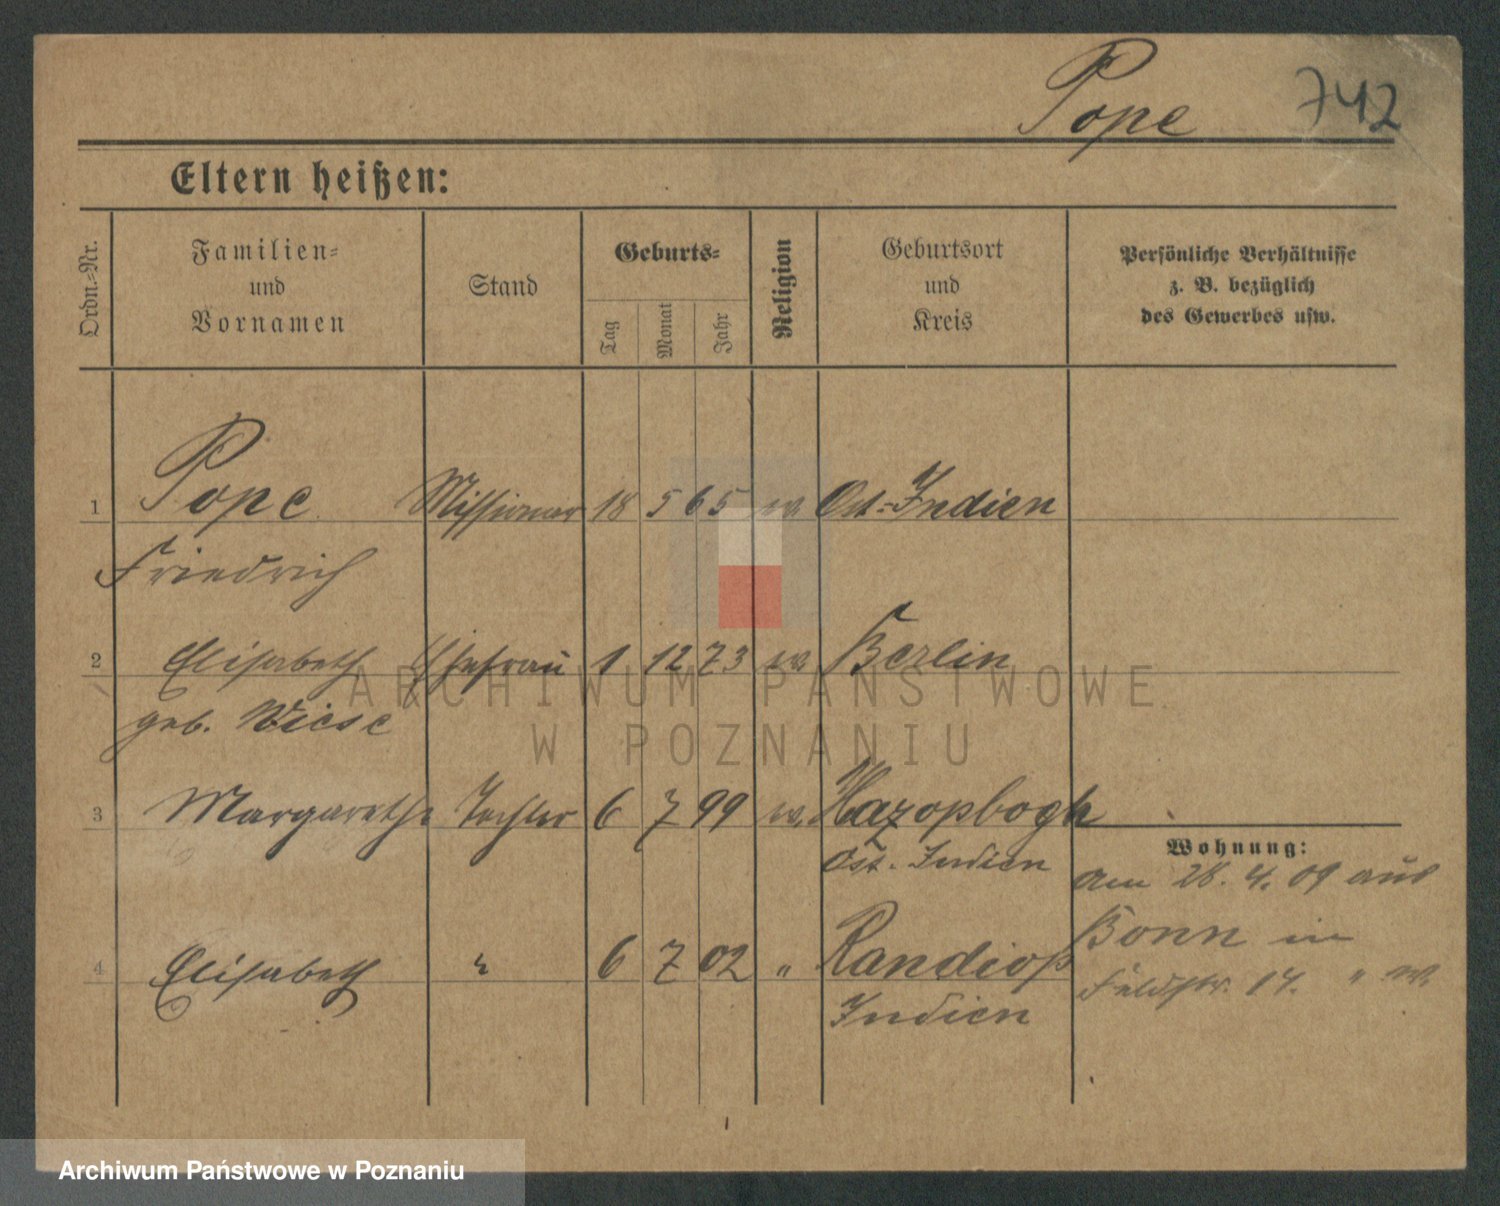 Pope 742
Eltern heißen:
Ordn.-Nr.
Familien-
und
Vornamen
Stand
Geburts-
Tag
Monat
Jahr
Religion
Geburtsort
und
Kreis
Persönliche Verhältnisse
z. B. bezüglich
des Gewerbes usw.
1 Pope Missionar 18 5 65 ev. Ost-Indien
Friedrich
2 Elisabeth Ehefrau 1 12 73 ev. Berlin
geb. Wiese
3 Margarethe Tochter 6 7 99 ev. Hazopbogh
Ost-Indien
Wohnung:
am 28. 4. 09 aus
Bonn in
Feldstr. 17.
4 Elisabeth " 6 7 02 "
Indien
ARCHIWUM PAŃSTWOWE
W POZNANIU
Archiwum Państwowe w Poznaniu